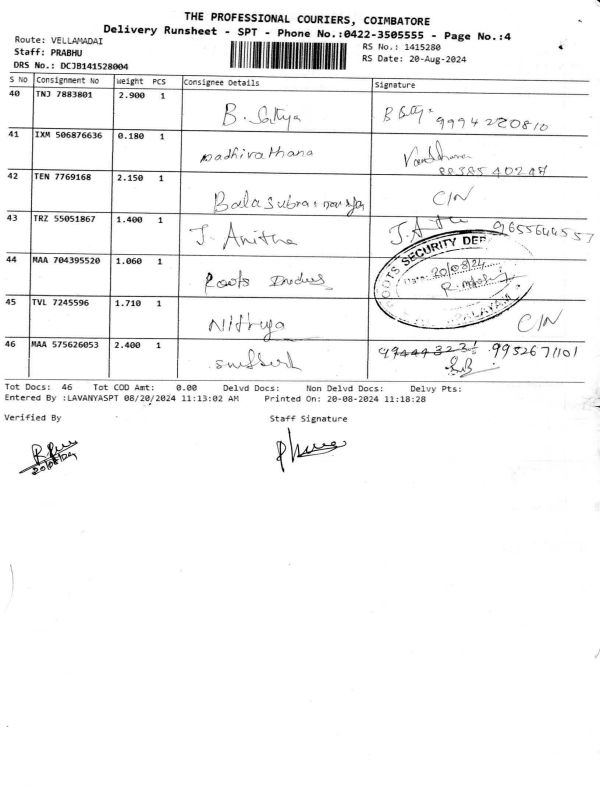 THE PROFESSIONAL COURIERS, COIMBATORE
Delivery Runsheet - SPT - Phone No.:0422-3505555 - Page No.:4
Route: VELLAMADAI
RS No.: 1415280
Staff: PRABHU
RS Date: 20-Aug-2024
DRS No.: DCJB141528004
S No Consignment No Weight PCS Consignee Details Signature
40 TNJ 7883801 2.900 1 B. Sathya 9994220810
41 IXM 506876636 0.180 1
42 TEN 7769168 2.150 1 C/N
43 TRZ 55051867 1.400 1 J. Anitha 9655644557
44 MAA 704395520 1.060 1 Roots
ROOTS SECURITY DEP
Date: 20/08/24
45 TVL 7245596 1.710 1 Nithya C/N
46 MAA 575626053 2.400 1 9952671101
Tot Docs: 46 Tot COD Amt: 0.00 Delvd Docs: Non Delvd Docs: Delvy Pts:
Entered By :LAVANYASPT 08/20/2024 11:13:02 AM Printed On: 20-08-2024 11:18:28
Verified By Staff Signature
20/08/24